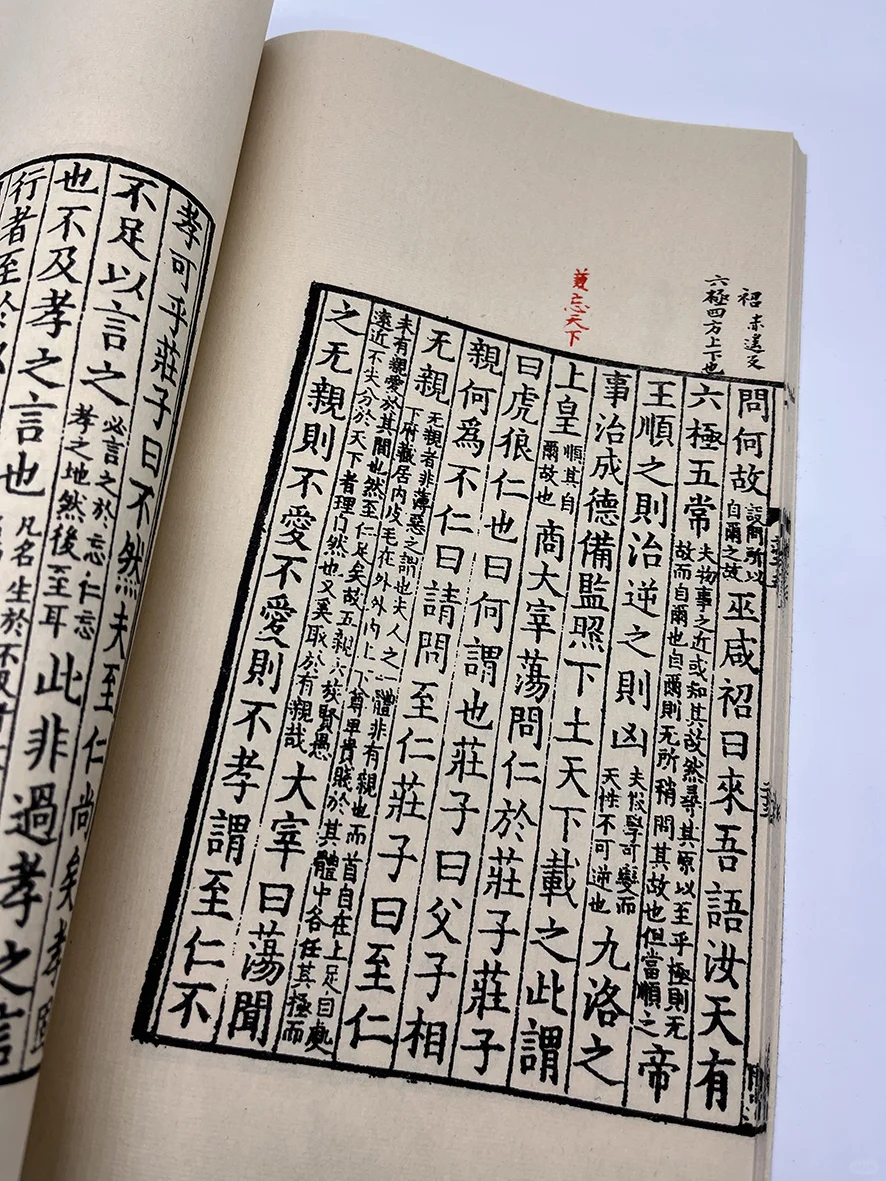 祒赤遙反
六極四方上下也
兼忘天下
問何故設問所以自爾之故巫咸祒曰來吾語汝天有
六極五常夫物事之近或知其故然尋其原以至乎極則无故而自爾也自爾則无所稍問其故也但當順之帝
王順之則治逆之則凶夫假學可變而天性不可逆也九洛之
事治成德備監照下土天下載之此謂
上皇順其自爾故也商大宰蕩問仁於莊子莊子
曰虎狼仁也曰何謂也莊子曰父子相
親何爲不仁曰請問至仁莊子曰至仁
无親无親者非薄惡之謂也夫人之一體非有親也而首自在上足自處下府藏居内皮毛在外外内上下尊卑貴賤於其體中各任其極而
未有親愛於其間也然至仁足矣故五親六族賢愚遠近不失分於天下者理自然也又奚取於有親哉大宰曰蕩聞
之无親則不愛不愛則不孝謂至仁不
孝可乎莊子曰不然夫至仁尚矣孝
不足以言之必言之於忘仁忘孝之地然後至耳此非過孝之言
也不及孝之言也凡名生於不及
行者至於郢